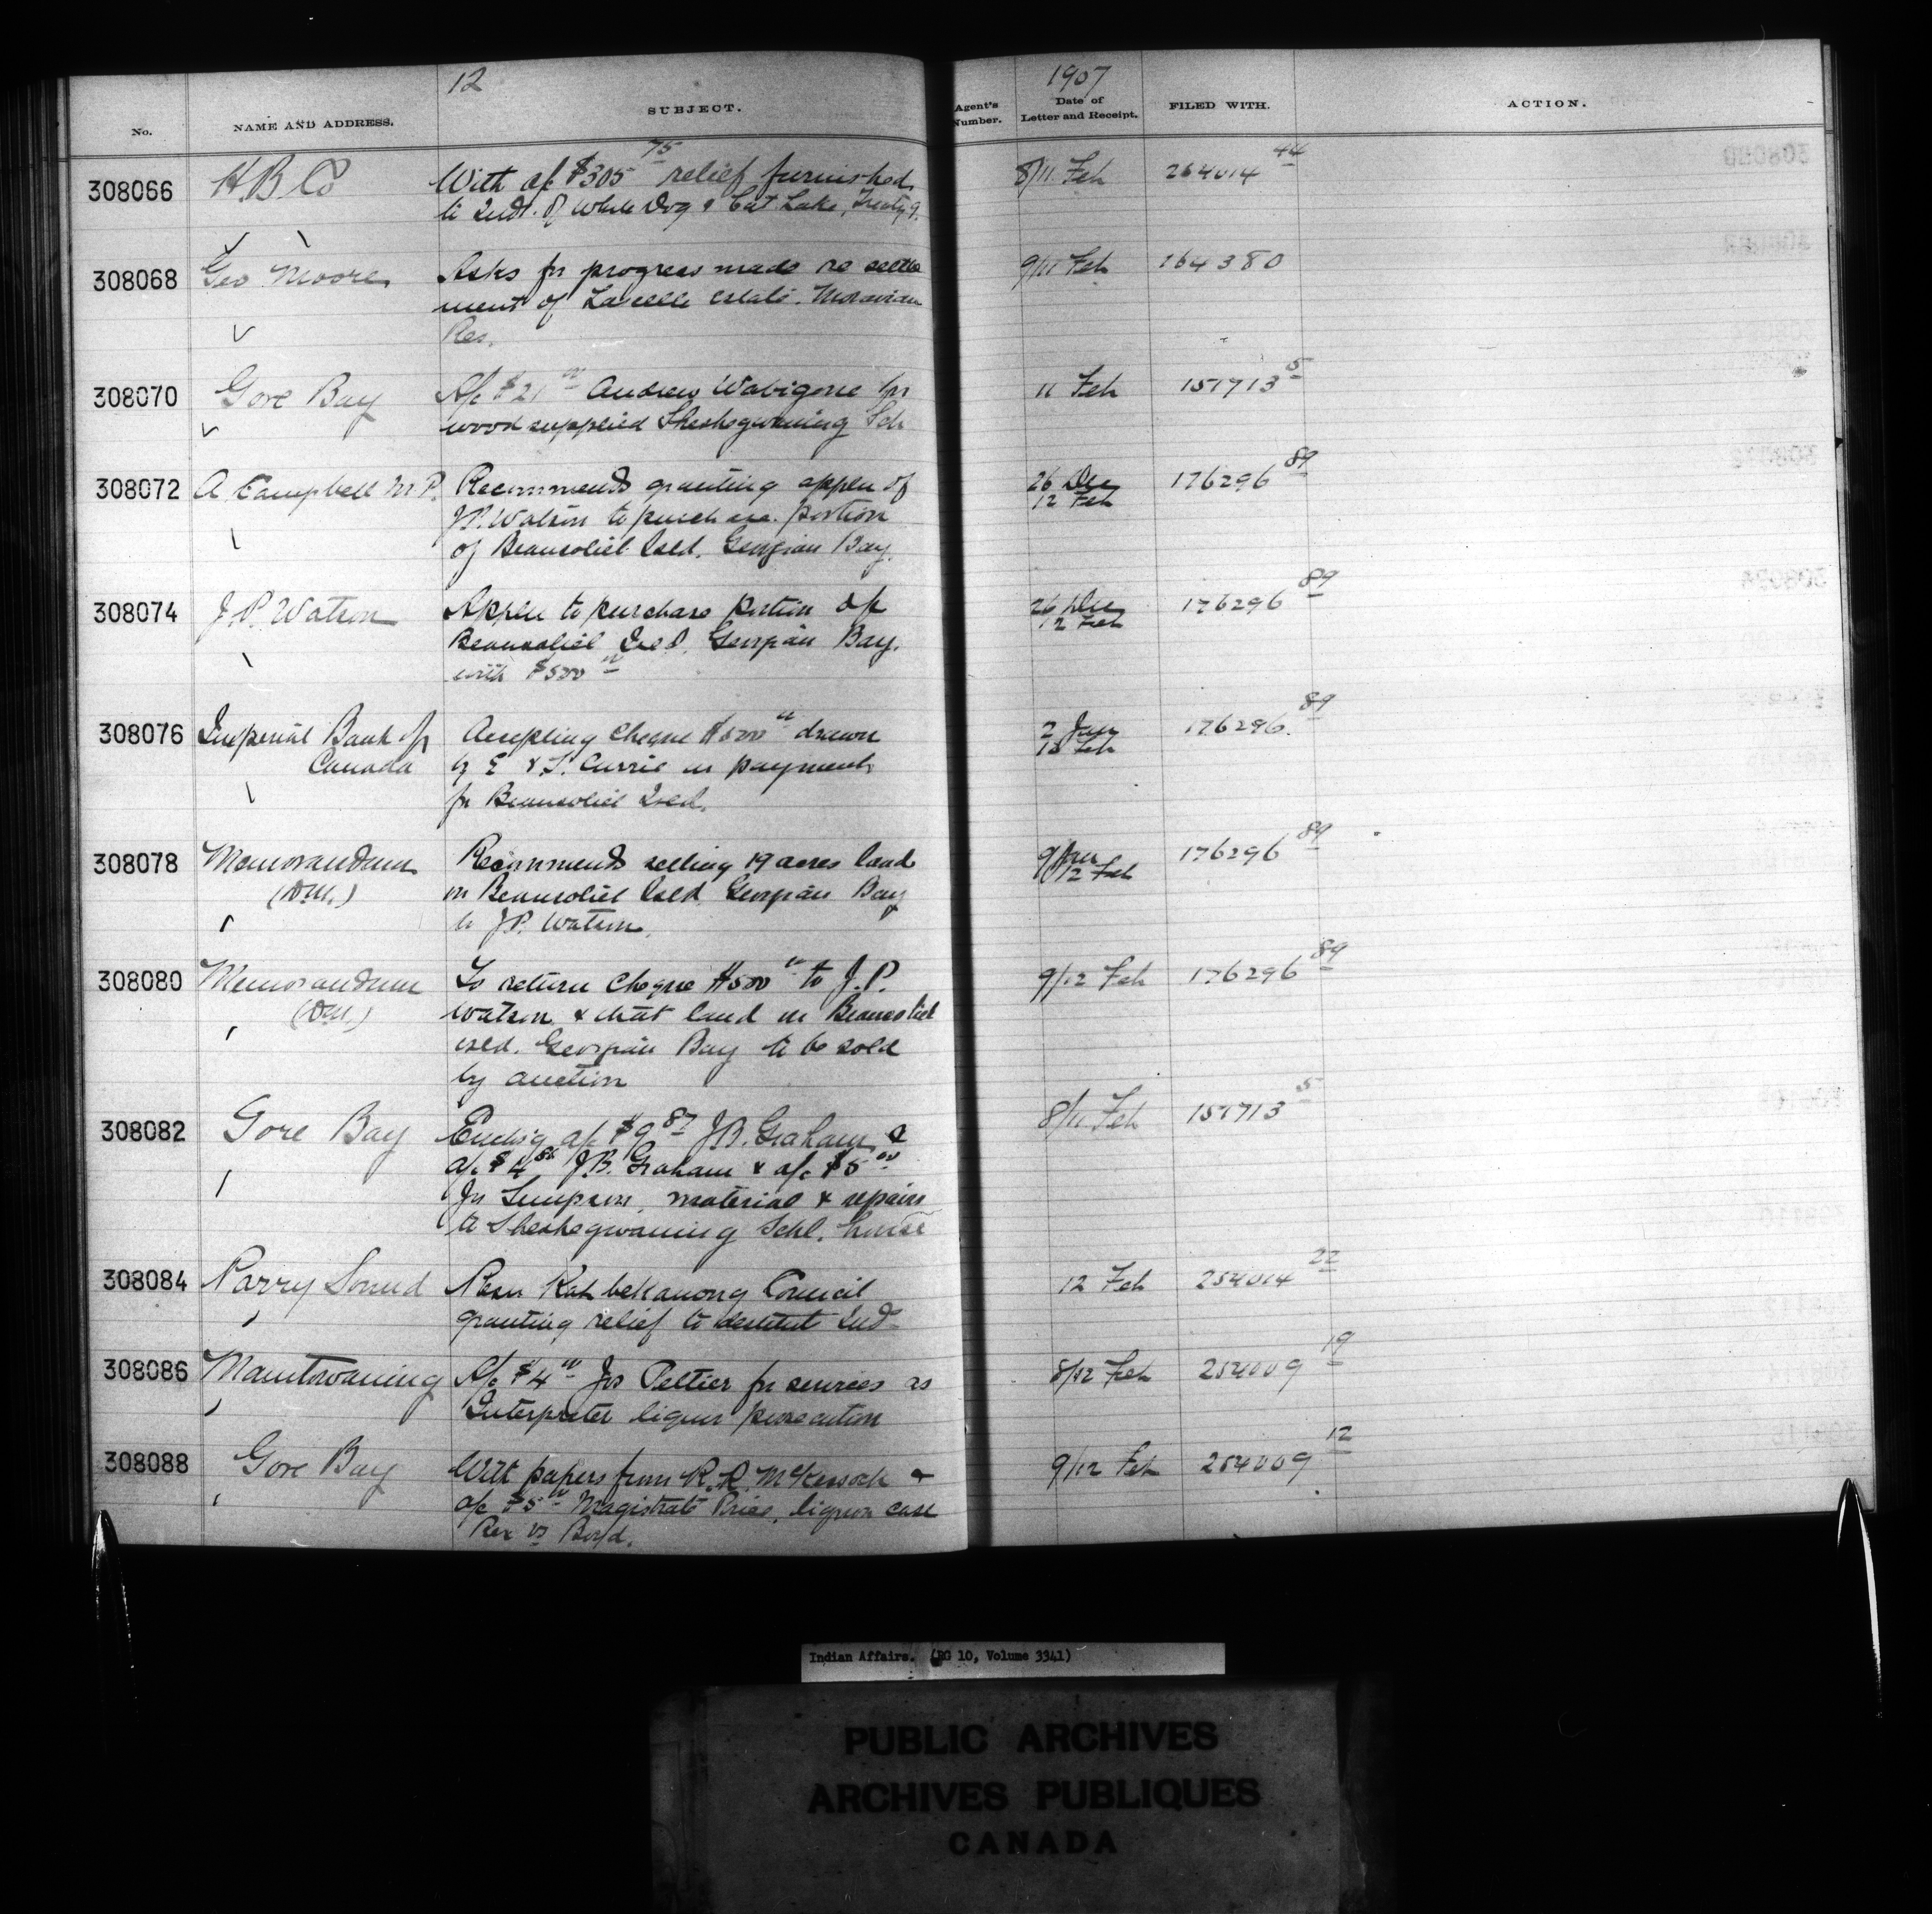 12
1907
No.
NAME AND ADDRESS.
SUBJECT.
Agent's Number.
Date of Letter and Receipt.
FILED WITH.
ACTION.
308066 H B Co With a/c $305 75 relief furnished 8/11 Feb 264014 44
to Inds. of White Dog & Cat Lake, Treaty 9.
308068 Geo Moore Asks for progress made re settle 9/11 Feb 164380
ment of estate. Moravian
Res.
308070 Gore Bay A/c $21 00 Andrew Wabigone for 11 Feb 151713 5
wood supplied Sheshegwaning Sch
308072 A Campbell M.P. Recommends granting appln of 26 Dec 176296 89
J.P. Watson to purchase portion 12 Feb
of Beausoliel Isld. Georgian Bay.
308074 J.P. Watson Appln to purchase portion of 26 Dec 176296 89
Beausoliel Isld. Georgian Bay. 12 Feb
with $500 00
308076 Imperial Bank of Accepting Cheque $500 00 drawn 2 Jan 176296 89
Canada by E & S. Currie in payment Feb
for Beausoliel Isld.
308078 Memorandum Recommends selling 19 acres land 9 Jan 176296 89
(D.M.) in Beausoliel Isld Georgian Bay 12 Feb
to J.P. Watson.
308080 Memorandum To return Cheque $500 00 to J.P. 9/12 Feb 176296 89
(D.M.) Watson & that land in Beausoliel
isld. Georgian Bay to be sold
by auction
308082 Gore Bay Enclsg a/c $9 87 J.B. Graham & 8/11 Feb 151713 5
a/c $4 J.B. Graham & a/c $5 00
Jn Simpson, material & repairs
to Sheshegwaning Schl. house
308084 Parry Sound Resn Council 12 Feb 254014 22
granting relief to destitute Inds
308086 Manitowaning A/c $4 00 Jos Peltier for services as 8/12 Feb 254009 19
Interpreter liquor prosecution
308088 Gore Bay With papers from R.R. McKessock & 9/12 Feb 254009 12
a/c $5 00 Magistrate Price, liquor case
Rex vs Boyd.
Indian Affairs. (RG 10, Volume 3341)
PUBLIC ARCHIVES
ARCHIVES PUBLIQUES
CANADA